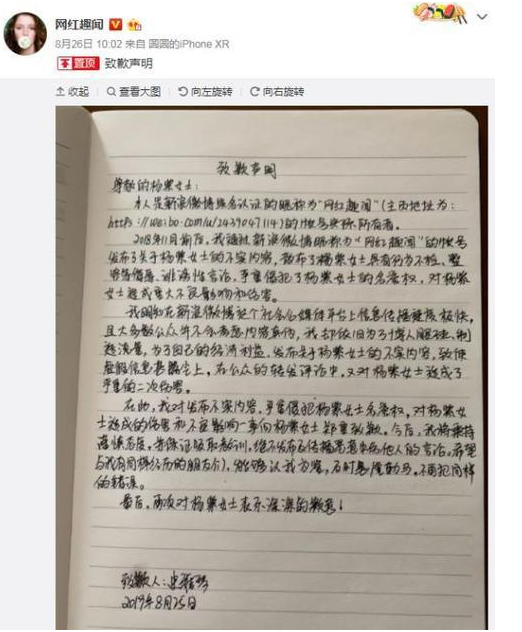 网红趣闻
8月26日 10:02 来自 圆圆的iPhone XR
置顶 致歉声明
收起 查看大图 向左旋转 向右旋转
致歉声明
尊敬的杨幂女士：
本人是新浪微博实名认证的昵称为“网红趣闻”(主页地址为：
https://weibo.com/u/2439047114)的账号实际所有者。
2018年11月前后，我通过新浪微博昵称为“网红趣闻”的账号
发布了关于杨幂女士的不实内容，散布了杨幂女士具有行为不检、整
容等侮辱、诽谤性言论，严重侵犯了杨幂女士的名誉权，对杨幂
女士造成重大不良影响和伤害。
我明知在新浪微博这个社会公众媒体平台上信息传播速度极快，
且大多数公众并不会考虑内容真伪，我却依旧为了博人眼球、制
造流量，为了自己的经济利益，发布关于杨幂女士的不实内容，致使
虚假信息甚嚣尘上，在公众的转发评论中，又对杨幂女士造成了
严重的二次伤害。
在此，我对发布不实内容，严重侵犯杨幂女士名誉权，对杨幂女
士造成的伤害和不良影响一事向杨幂女士郑重致歉。今后，我将秉持
谨慎态度，并保证吸取教训，绝不发布及传播恶意中伤他人的言论。希望
与我有同样行为的朋友们，能够以我为鉴，及时悬崖勒马，不再犯同样
的错误。
最后，再次对杨幂女士表示深深的歉意！
致歉人：
2019年8月25日